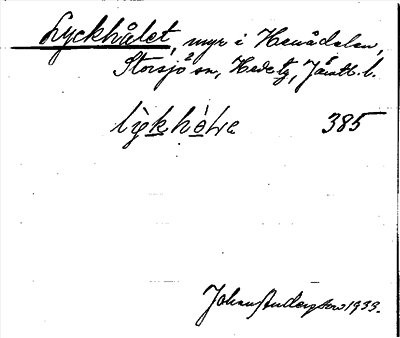 Lyckhålet, myr i Henådalen,
Storsjö sn, Hede tg, Jämtl. l.
385
Johan Andersson 1933.